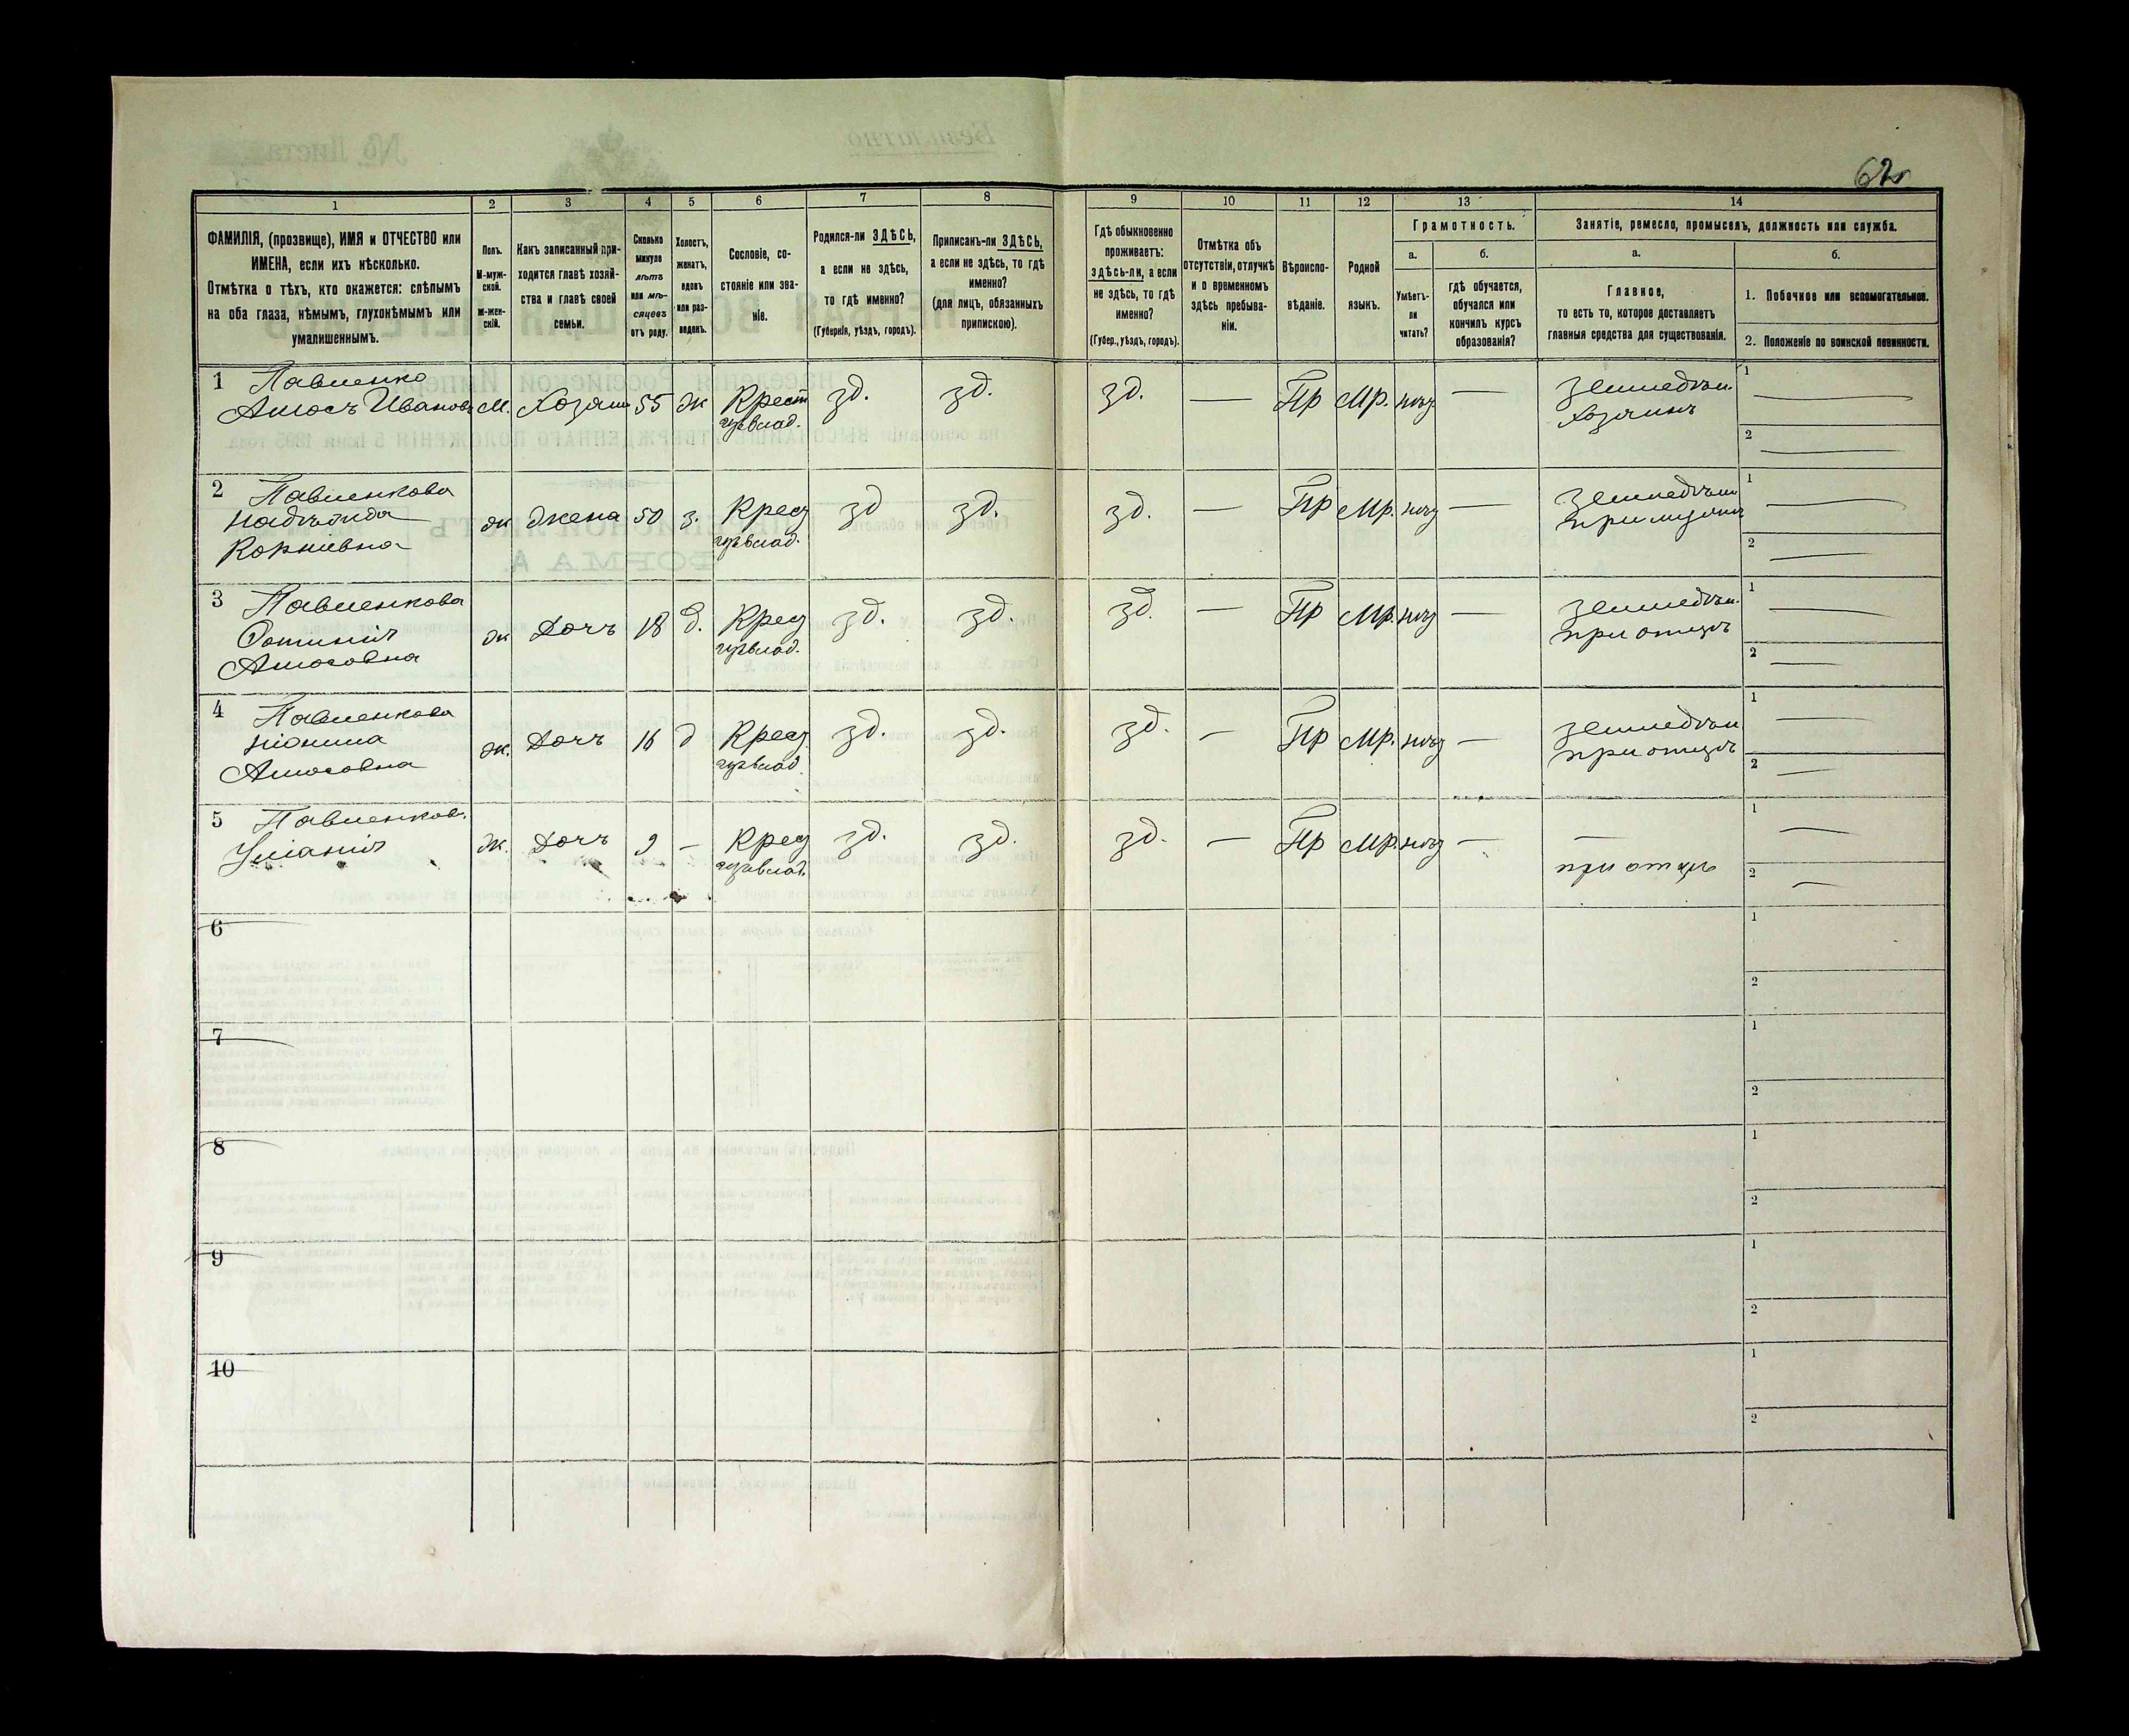 62
1
2
3
4
5
6
7
8
9
10
11
12
13
14
ФАМИЛІЯ, (прозвище), ИМЯ и ОТЧЕСТВО или
ИМЕНА, если ихъ нѣсколько.
Отмѣтка о тѣхъ, кто окажется: слѣпымъ
на оба глаза, нѣмымъ, глухонѣмымъ или
умалишеннымъ.
Полъ.
М-муж-
ской.
Ж-жен-
скій.
Какъ записанный при-
ходится главѣ хозяй-
ства и главѣ своей
семьи.
Сколько
минуло
лѣтъ
или мѣ-
сяцевъ
отъ роду.
Холостъ,
женатъ,
вдовъ
или раз-
веденъ.
Сословіе, со-
стояніе или зва-
ніе.
Родился-ли ЗДѢСЬ,
а если не здѣсь,
то гдѣ именно?
(Губернія, уѣздъ, городъ).
Приписанъ-ли ЗДѢСЬ,
а если не здѣсь, то гдѣ
именно?
(для лицъ, обязанныхъ
припискою).
Гдѣ обыкновенно
проживаетъ:
здѣсь-ли, а если
не здѣсь, то гдѣ
именно?
(Губер., уѣздъ, городъ).
Отмѣтка объ
отсутствіи, отлучкѣ
и о временномъ
здѣсь пребыва-
ніи.
Вѣроиспо-
вѣданіе.
Родной
языкъ.
Грамотность.
а.
Умѣетъ-
ли
читать?
б.
гдѣ обучается,
обучался или
кончилъ курсъ
образованія?
Занятіе, ремесло, промыселъ, должность или служба.
а.
Главное,
то есть то, которое доставляетъ
главныя средства для существованія.
б.
1. Побочное или вспомогательное.
2. Положеніе по воинской повинности.
1 Павленко
Амосъ Ивановъ М. Хозяин 55 ж Крест зд. зд. зд. — Пр Мр. нѣт — Земледѣл. 1 —
хозяинъ 2 —
2 Павленкова
Надѣжда ж жена 50 з. Крес зд зд. зд. — Пр Мр. нѣт — Земледѣл 1 —
Корніевна 2 —
3 Павленкова
Фотинія ж Дочь 18 д. Крес зд. зд. зд. — Пр Мр. нѣт — Земледѣл. 1 —
Амосовна при отцѣ 2 —
4 Павленкова
ж. Дочь 16 д Крес зд. зд. зд. — Пр Мр. нѣт — Земледѣл 1 —
Амосовна при отцѣ 2 —
5 Павленков.
Уліанія ж. Дочь 9 — Крес зд. зд. зд. — Пр Мр. нѣт — — 1 —
при отцѣ 2 —
6 1
2
7 1
2
8 1
2
9 1
2
10 1
2